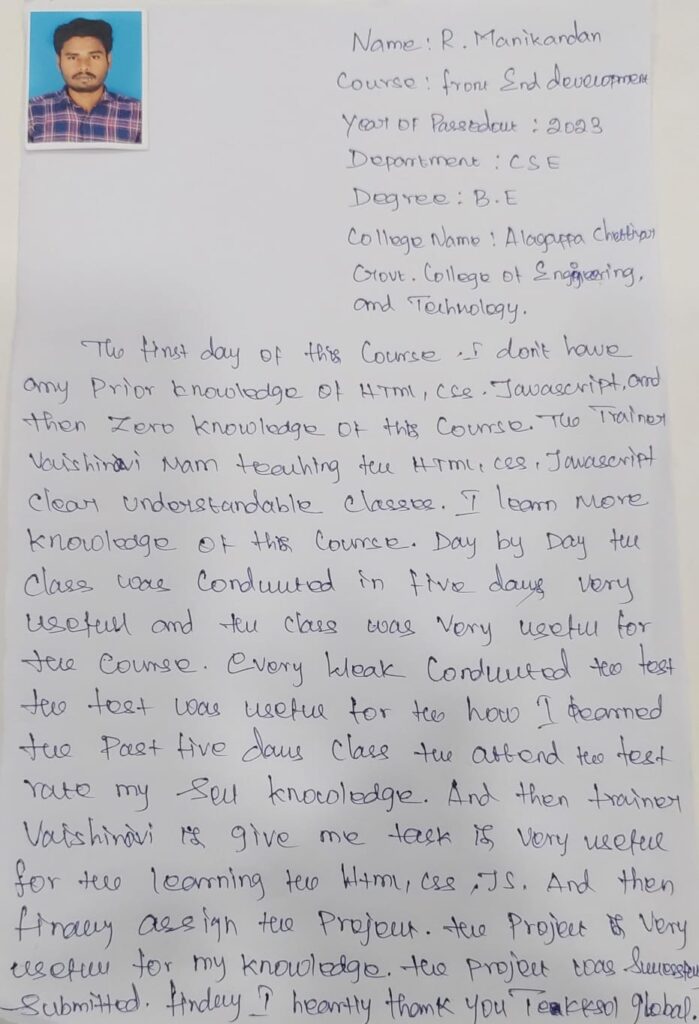 Name : R. Manikandan
Course : front End development
Year of Passedout : 2023
Department : CSE
Degree : B.E
College Name : Alagappa Chettiyar
Govt. College of Engineering,
and Technology.
The first day of this Course . I don't have
any Prior knowledge of HTML, CSS. Javascript, and
then Zero knowledge of this Course. The Trainer
Vaishinavi Mam teaching the HTML, CSS, Javascript
clear understandable classes. I learn more
knowledge of this Course. Day by Day the
Class was Conducted in five days very
usefull and the class was very useful for
the Course. Every Weak Conducted the test
the test was useful for the how I learned
the Past five days class the attend the test
rate my self knowledge. And then trainer
Vaishinavi is give me task is very useful
for the learning the Html, css, JS. And then
finally assign the Project. the Project is very
useful for my knowledge. the project was Successfull
Submitted. finally I heartly thank you Teakksol global.